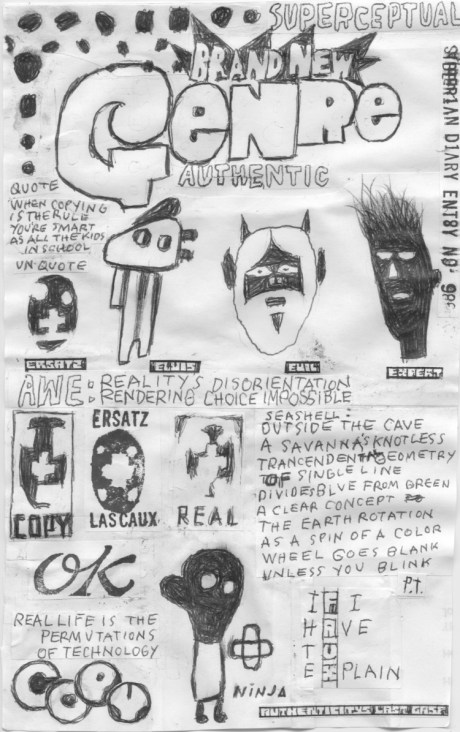 SUPERCEPTUAL
BRAND NEW
GENRE
AUTHENTIC
SYBERIAN DIARY ENTRY NO.
QUOTE
WHEN COPYING
IS THE RULE
YOU'RE SMART
AS ALL THE KIDS
IN SCHOOL
UNQUOTE
ERSATZ
ELVIS
EVIL
EXPERT
AWE: REALITYS DISORIENTATION
RENDERING CHOICE IMPOSSIBLE
COPY
ERSATZ
LASCAUX
REAL
SEASHELL:
OUTSIDE THE CAVE
A SAVANNAS KNOTLESS
TRANCENDENTAL GEOMETRY
OF SINGLE LINE
DIVIDES BLUE FROM GREEN
A CLEAR CONCEPT
THE EARTH ROTATION
AS A SPIN OF A COLOR
WHEEL GOES BLANK
UNLESS YOU BLINK
P.T.
OK
REAL LIFE IS THE
PERMUTATIONS
OF TECHNOLOGY
NINJA
I
HAVE
TO
EXPLAIN
AUTHENTICITYS LAST GASP